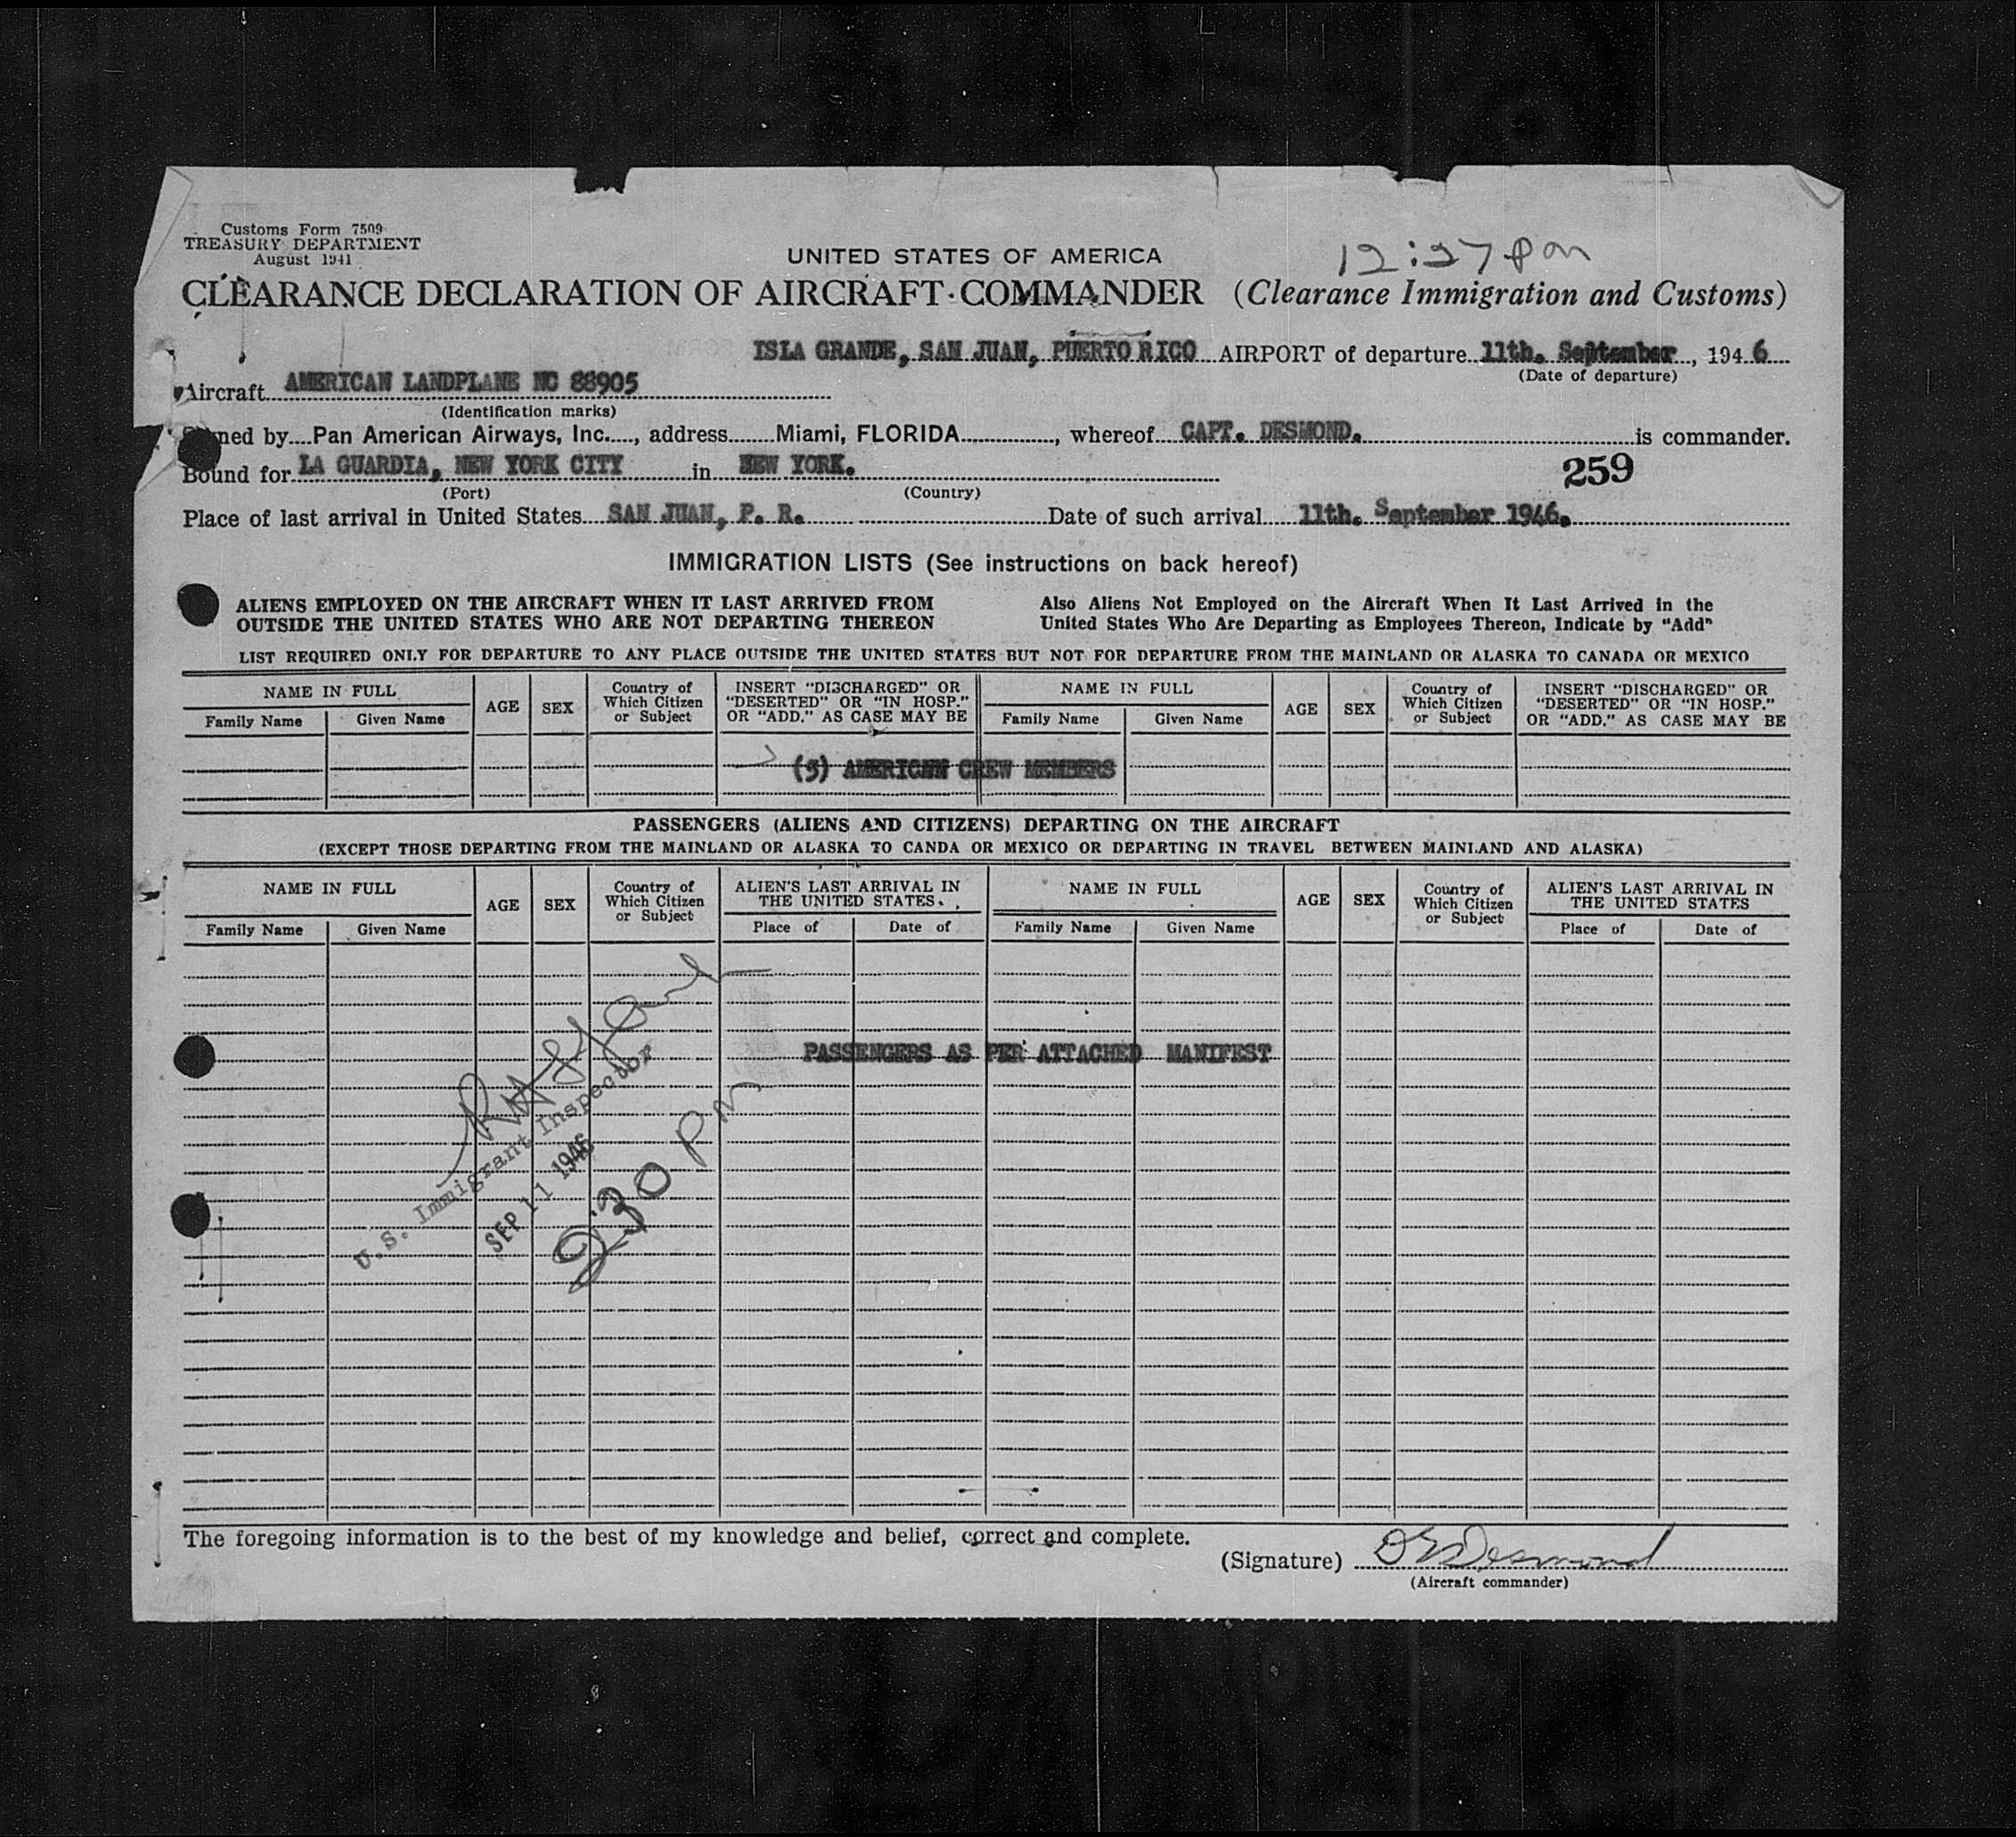 Customs Form 7509
TREASURY DEPARTMENT
August 1941
UNITED STATES OF AMERICA
12:27 pm
CLEARANCE DECLARATION OF AIRCRAFT COMMANDER (Clearance Immigration and Customs)
ISLA GRANDE, SAN JUAN, PUERTO RICO AIRPORT of departure 11th. September, 1946
(Date of departure)
Aircraft AMERICAN LANDPLANE NC 88905
(Identification marks)
ned by Pan American Airways, Inc., address Miami, FLORIDA, whereof CAPT. DESMOND. is commander.
Bound for LA GUARDIA, NEW YORK CITY in NEW YORK.
259
(Port) (Country)
Place of last arrival in United States SAN JUAN, P. R. Date of such arrival 11th. September 1946.
IMMIGRATION LISTS (See instructions on back hereof)
ALIENS EMPLOYED ON THE AIRCRAFT WHEN IT LAST ARRIVED FROM
OUTSIDE THE UNITED STATES WHO ARE NOT DEPARTING THEREON
Also Aliens Not Employed on the Aircraft When It Last Arrived in the
United States Who Are Departing as Employees Thereon, Indicate by "Add"
LIST REQUIRED ONLY FOR DEPARTURE TO ANY PLACE OUTSIDE THE UNITED STATES BUT NOT FOR DEPARTURE FROM THE MAINLAND OR ALASKA TO CANADA OR MEXICO
NAME IN FULL
Family Name Given Name
AGE
SEX
Country of
Which Citizen
or Subject
INSERT "DISCHARGED" OR
"DESERTED" OR "IN HOSP."
OR "ADD." AS CASE MAY BE
NAME IN FULL
Family Name Given Name
AGE
SEX
Country of
Which Citizen
or Subject
INSERT "DISCHARGED" OR
"DESERTED" OR "IN HOSP."
OR "ADD." AS CASE MAY BE
(5) AMERICAN CREW MEMBERS
PASSENGERS (ALIENS AND CITIZENS) DEPARTING ON THE AIRCRAFT
(EXCEPT THOSE DEPARTING FROM THE MAINLAND OR ALASKA TO CANDA OR MEXICO OR DEPARTING IN TRAVEL BETWEEN MAINLAND AND ALASKA)
NAME IN FULL
Family Name Given Name
AGE
SEX
Country of
Which Citizen
or Subject
ALIEN'S LAST ARRIVAL IN
THE UNITED STATES
Place of Date of
NAME IN FULL
Family Name Given Name
AGE
SEX
Country of
Which Citizen
or Subject
ALIEN'S LAST ARRIVAL IN
THE UNITED STATES
Place of Date of
PASSENGERS AS PER ATTACHED MANIFEST
U.S. Immigrant Inspector
SEP 11 1946
2:30 pm
The foregoing information is to the best of my knowledge and belief, correct and complete.
(Signature) D E Desmond
(Aircraft commander)